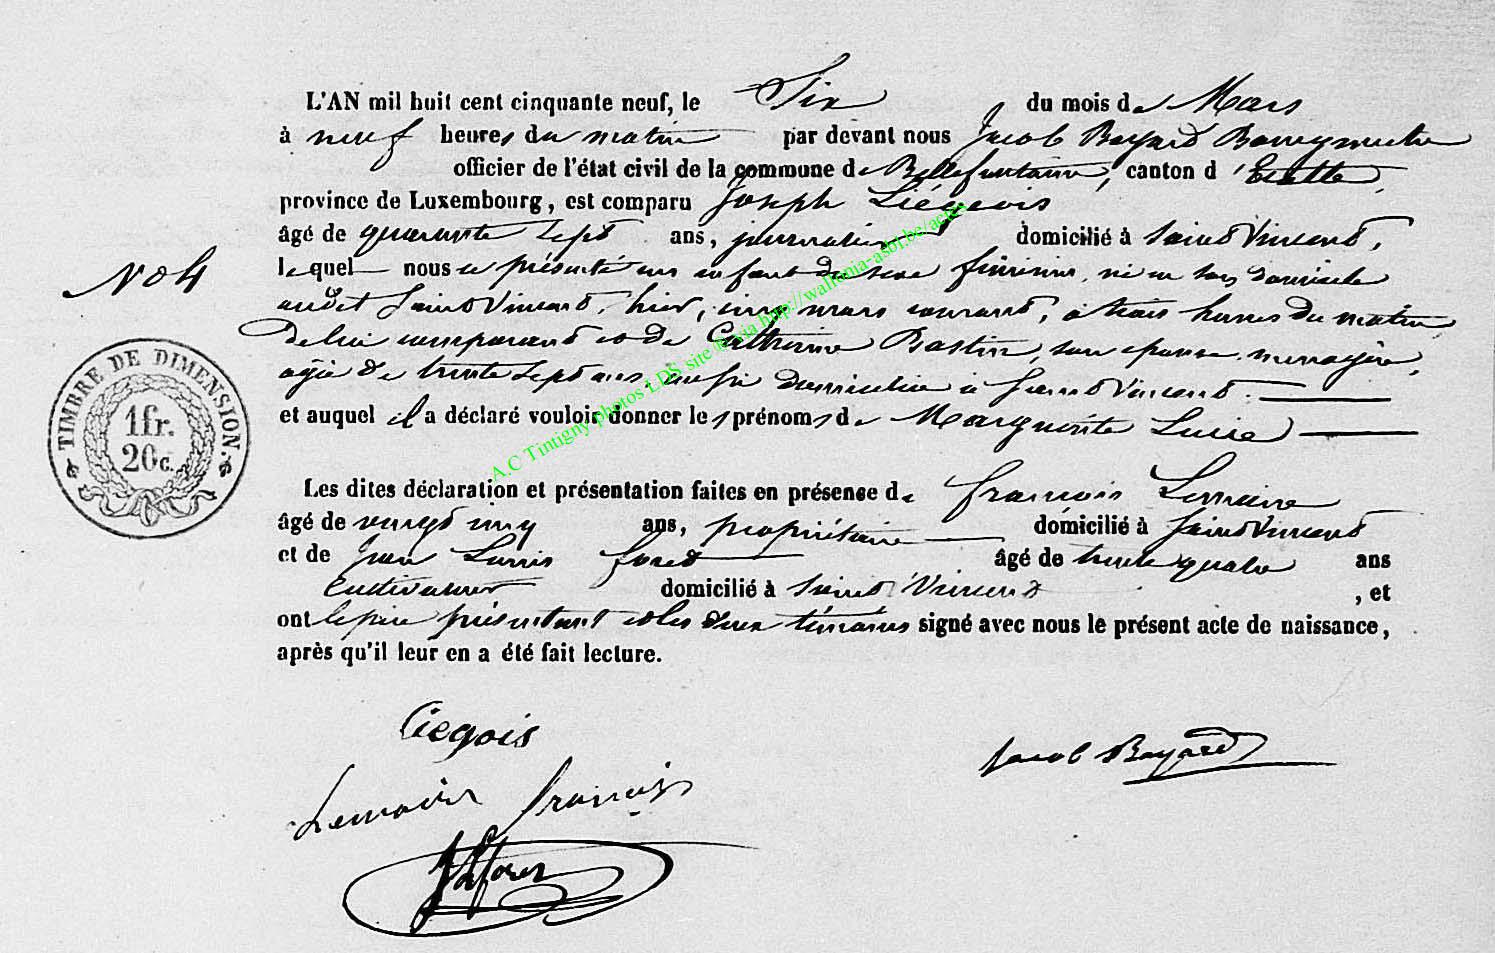 L'AN mil huit cent cinquante neuf, le Six du mois de Mars
à neuf heures du matin par devant nous Jacob Bayard Bourgmestre
officier de l'état civil de la commune de Bellefontaine, canton d'Etalle,
province de Luxembourg, est comparu Joseph Liégeois
âgé de quarante sept ans, journalier domicilié à Saint Vincent,
lequel nous a présenté un enfant du sexe féminin, né en son domicile
N° 4
audit Saint Vincent, hier, cinq mars courant, à trois heures du matin
de lui comparant et de Catherine Bastin, son épouse, ménagère,
âgée de trente sept ans, aussi domiciliée à Saint Vincent.
et auquel il a déclaré vouloir donner les prénoms de Marguerite Lucie
TIMBRE DE DIMENSION.
1fr.
20c.
Les dites déclaration et présentation faites en présence de François Lemaire
âgé de vingt cinq ans, propriétaire domicilié à Saint Vincent
et de Jean Louis foret âgé de trente quatre ans
Cultivateur domicilié à Saint Vincent, et
ont le père présentant et les deux témoins signé avec nous le présent acte de naissance,
après qu'il leur en a été fait lecture.
Liegois
Jacob Bayard
Lemaire françois
A.C Tintigny photos LDS site © via http://wallonia-asbl.be/actes